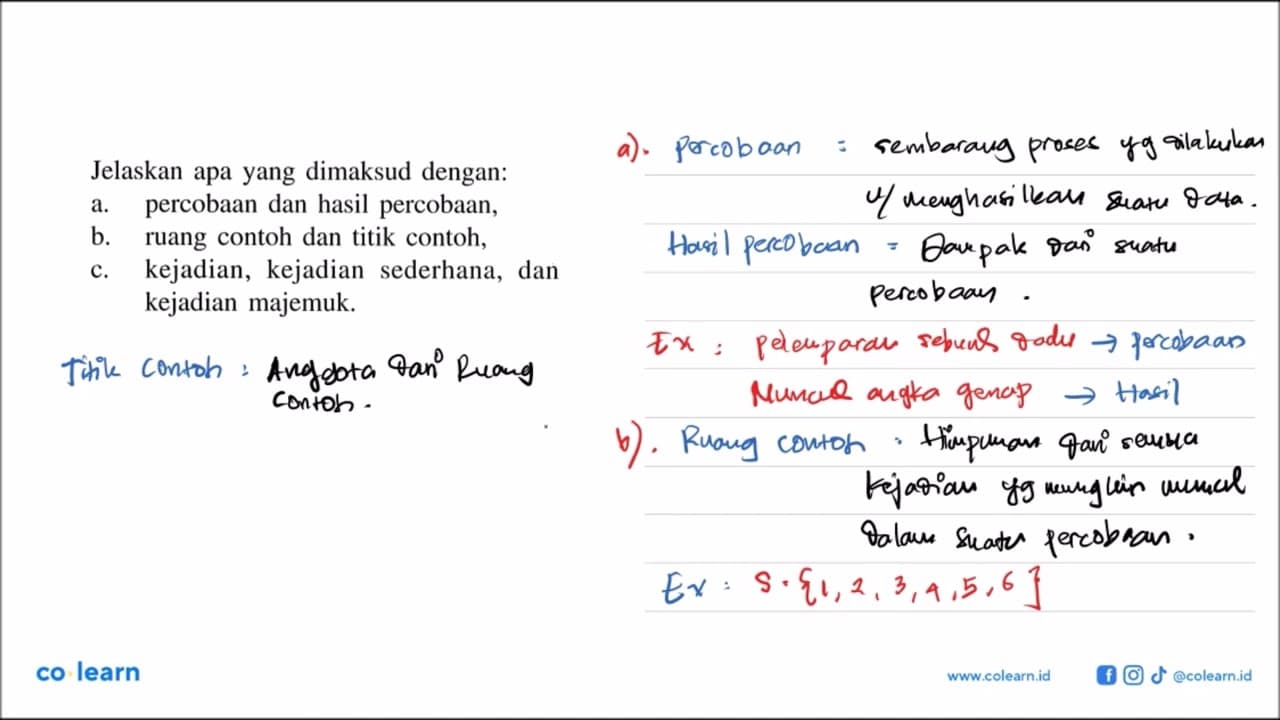 Jelaskan apa yang dimaksud dengan:
a. percobaan dan hasil percobaan,
b. ruang contoh dan titik contoh,
c. kejadian, kejadian sederhana, dan
kejadian majemuk.
Titik contoh : Anggota dari Ruang
contoh.
a). Percobaan : sembarang proses yg dilakukan
u/ menghasilkan suatu data.
Hasil percobaan = Dampak dari suatu
percobaan.
Ex : pelemparan sebuah dadu → percobaan
Muncul angka genap → Hasil
b). Ruang contoh : Himpunan dari semua
kejadian yg mungkin muncul
dalam suatu percobaan.
Ex : S = {1, 2, 3, 4, 5, 6}
co learn
www.colearn.id @colearn.id